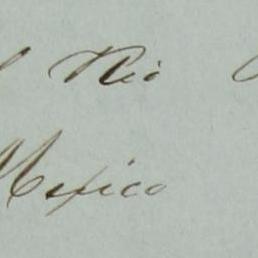 Rio
Mexico